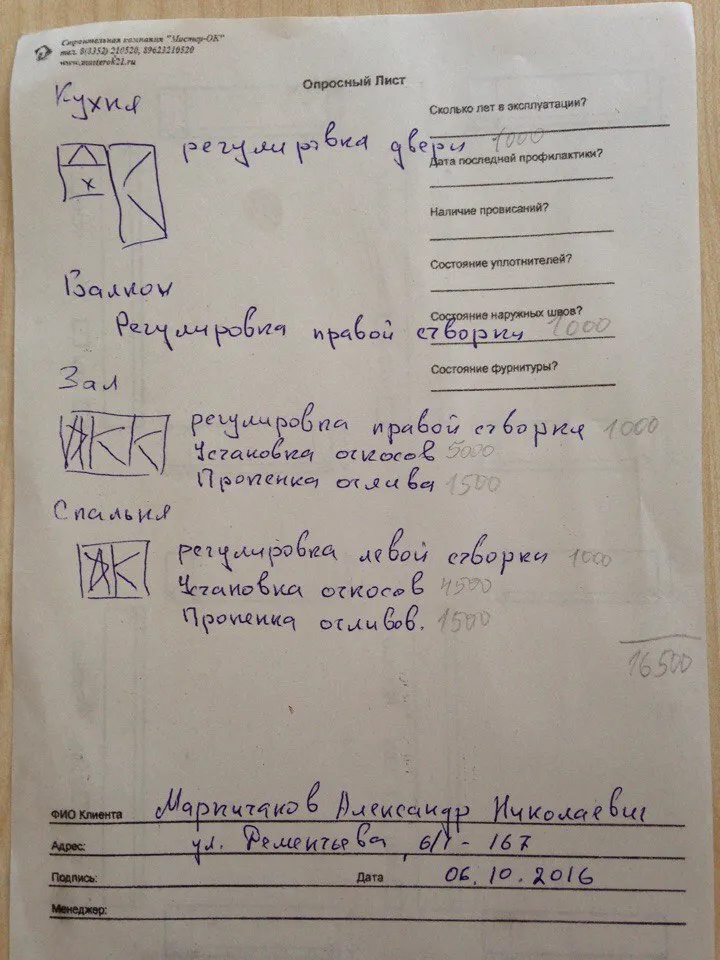 Строительная компания "Мастер-ОК"
тел. 8(8352) 210520, 89623210520
www.masterok21.ru
Опросный Лист
Сколько лет в эксплуатации?
Дата последней профилактики?
Наличие провисаний?
Состояние уплотнителей?
Состояние наружных швов?
Состояние фурнитуры?
Кухня
регулировка двери 1000
Балкон
Регулировка правой створки 1000
Зал
регулировка правой створки 1000
Установка откосов 5000
Пропенка отлива 1500
Спальня
регулировка левой створки 1000
Установка откосов 4500
Пропенка отливов. 1500
16500
ФИО Клиента Александр Николаевич
Адрес: ул. 6/1 - 167
Подпись: Дата 06.10.2016
Менеджер: